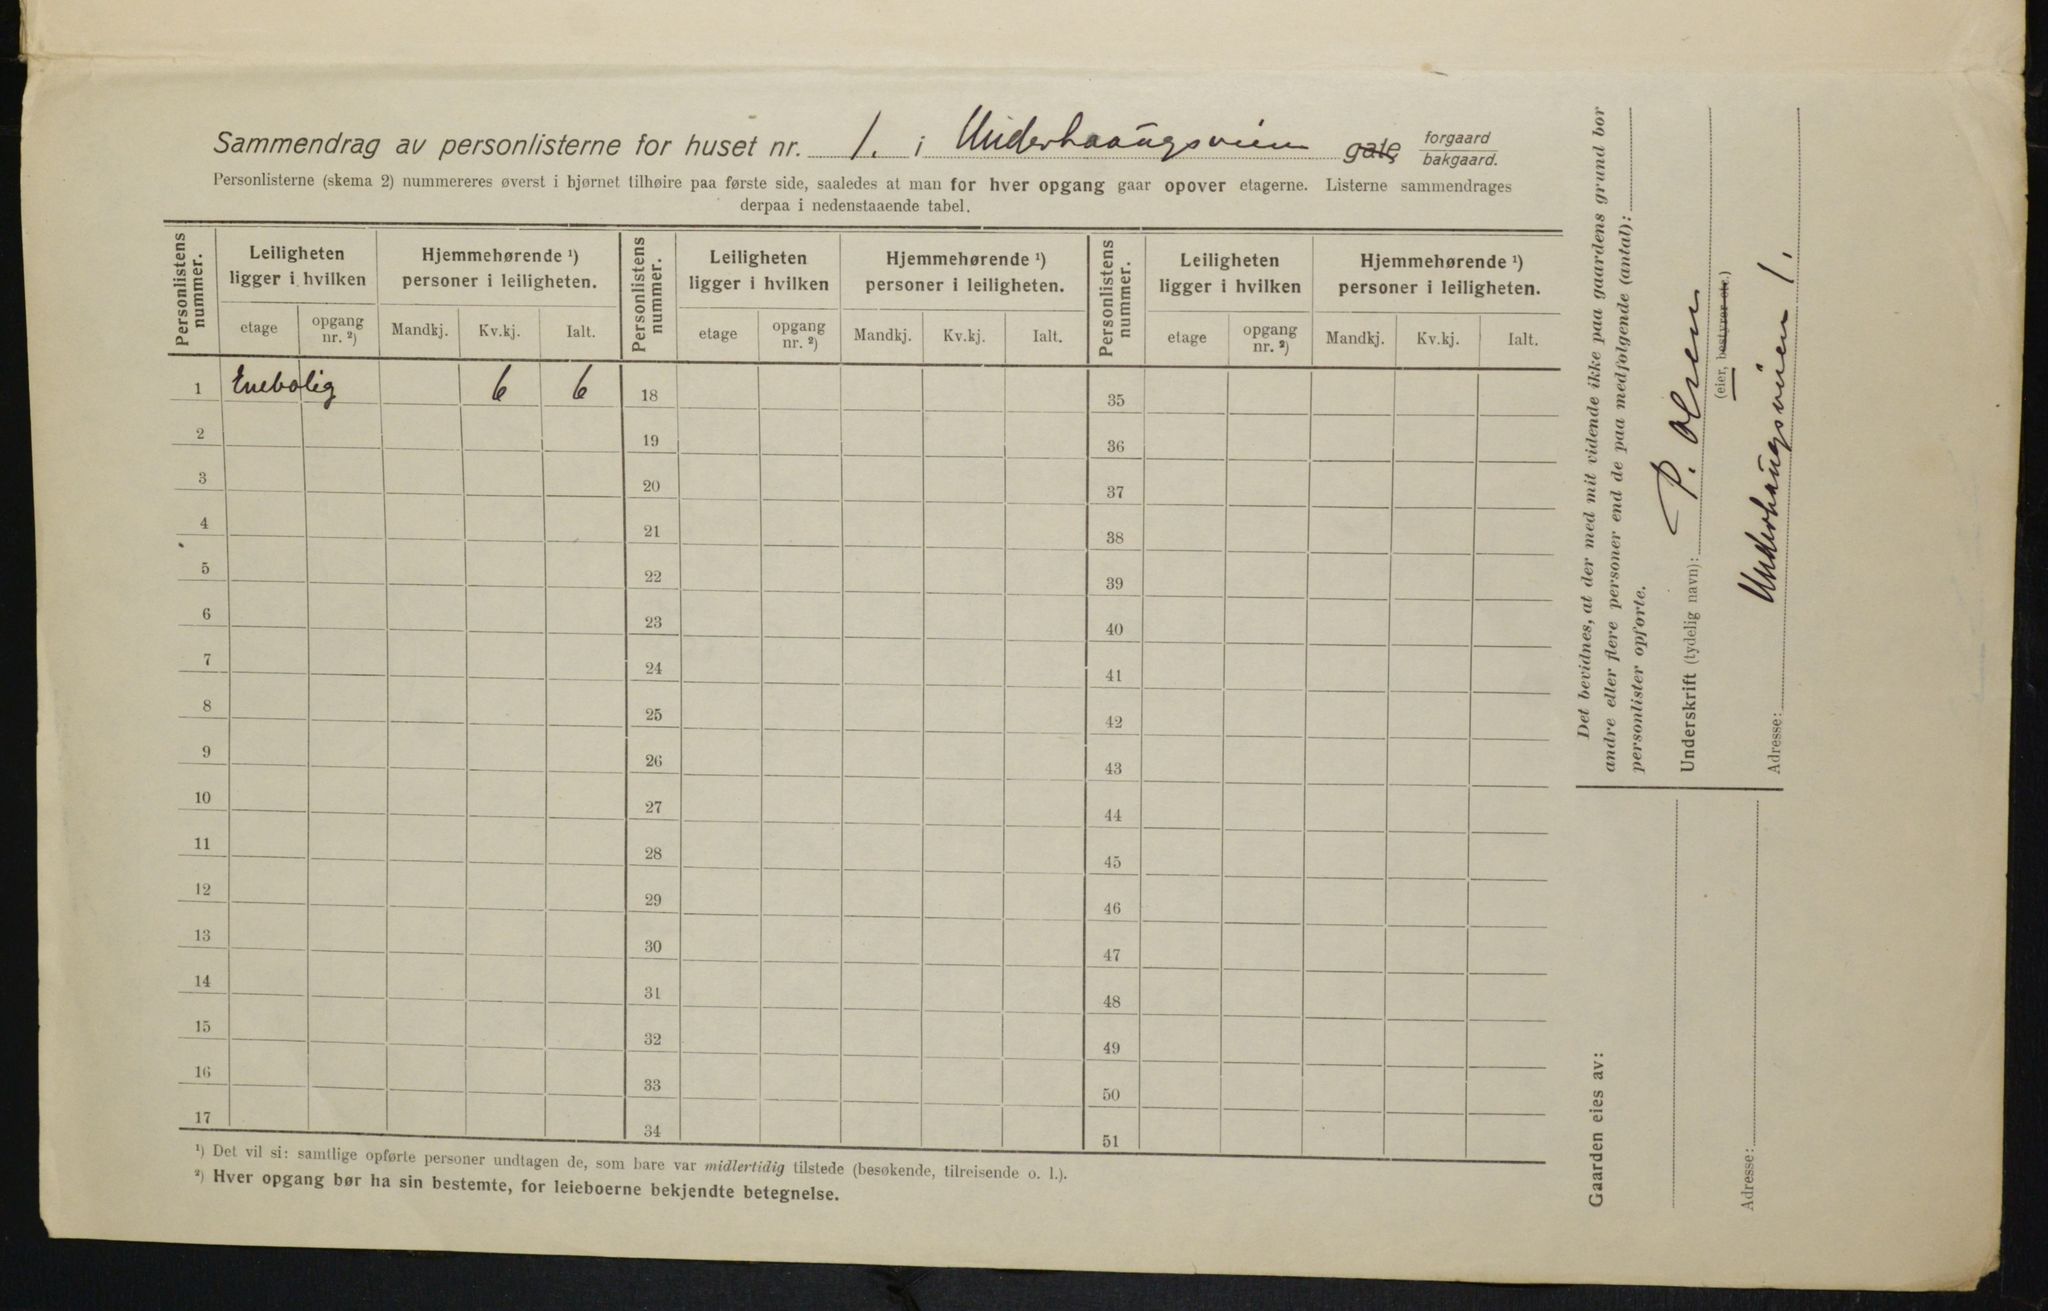 Sammendrag av personlisterne for huset nr. 1. i Underhaaugsveien gate, forgaard bakgaard.
Personlisterne (skema 2) nummereres øverst i hjørnet tilhøire paa første side, saaledes at man for hver opgang gaar opover etagerne. Listerne sammendrages
derpaa i nedenstaaende tabel.
Personlistens nummer. Leiligheten ligger i hvilken Hjemmehørende ¹) personer i leiligheten. Personlistens nummer. Leiligheten ligger i hvilken Hjemmehørende ¹) personer i leiligheten. Personlistens nummer. Leiligheten ligger i hvilken Hjemmehørende ¹) personer i leiligheten.
etage opgang nr. ²) Mandkj. Kv.kj. Ialt. etage opgang nr. ²) Mandkj. Kv.kj. Ialt. etage opgang nr. ²) Mandkj. Kv.kj. Ialt.
1 Enebolig 6 6 18 35
2 19 36
3 20 37
4 21 38
5 22 39
6 23 40
7 24 41
8 25 42
9 26 43
10 27 44
11 28 45
12 29 46
13 30 47
14 31 48
15 32 49
16 33 50
17 34 51
¹) Det vil si: samtlige opførte personer undtagen de, som bare var midlertidig tilstede (besøkende, tilreisende o. l.).
²) Hver opgang bør ha sin bestemte, for leieboerne bekjendte betegnelse.
Det bevidnes, at der med mit vidende ikke paa gaardens grund bor
andre eller flere personer end de paa medfølgende (antal):
personlister opførte.
Underskrift (tydelig navn): P. Olsen
(eier, bestyrer etc.)
Adresse: Underhaugsveien 1.
Gaarden eies av:
Adresse: